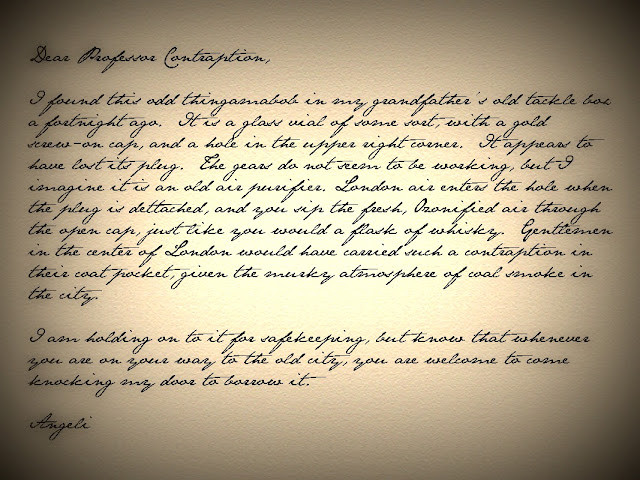 Dear Professor Contraption,
I found this odd thingamabob in my grandfather's old tackle box
a fortnight ago. It is a glass vial of some sort, with a gold
screw-on cap, and a hole in the upper right corner. It appears to
have lost its plug. The gears do not seem to be working, but I
imagine it is an old air purifier. London air enters the hole when
the plug is dettached, and you sip the fresh, Ozonified air through
the open cap, just like you would a flask of whisky. Gentlemen
in the center of London would have carried such a contraption in
their coat pocket, given the murky atmosphere of coal smoke in
the city.
I am holding on to it for safekeeping, but know that whenever
you are on your way to the old city, you are welcome to come
knocking my door to borrow it.
Angeli